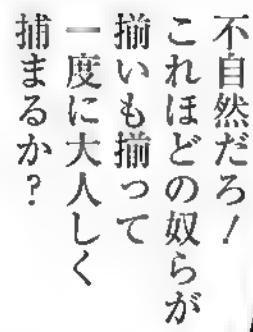 不自然だろ！
これほどの奴らが
揃いも揃って
一度に大人しく
捕まるか？